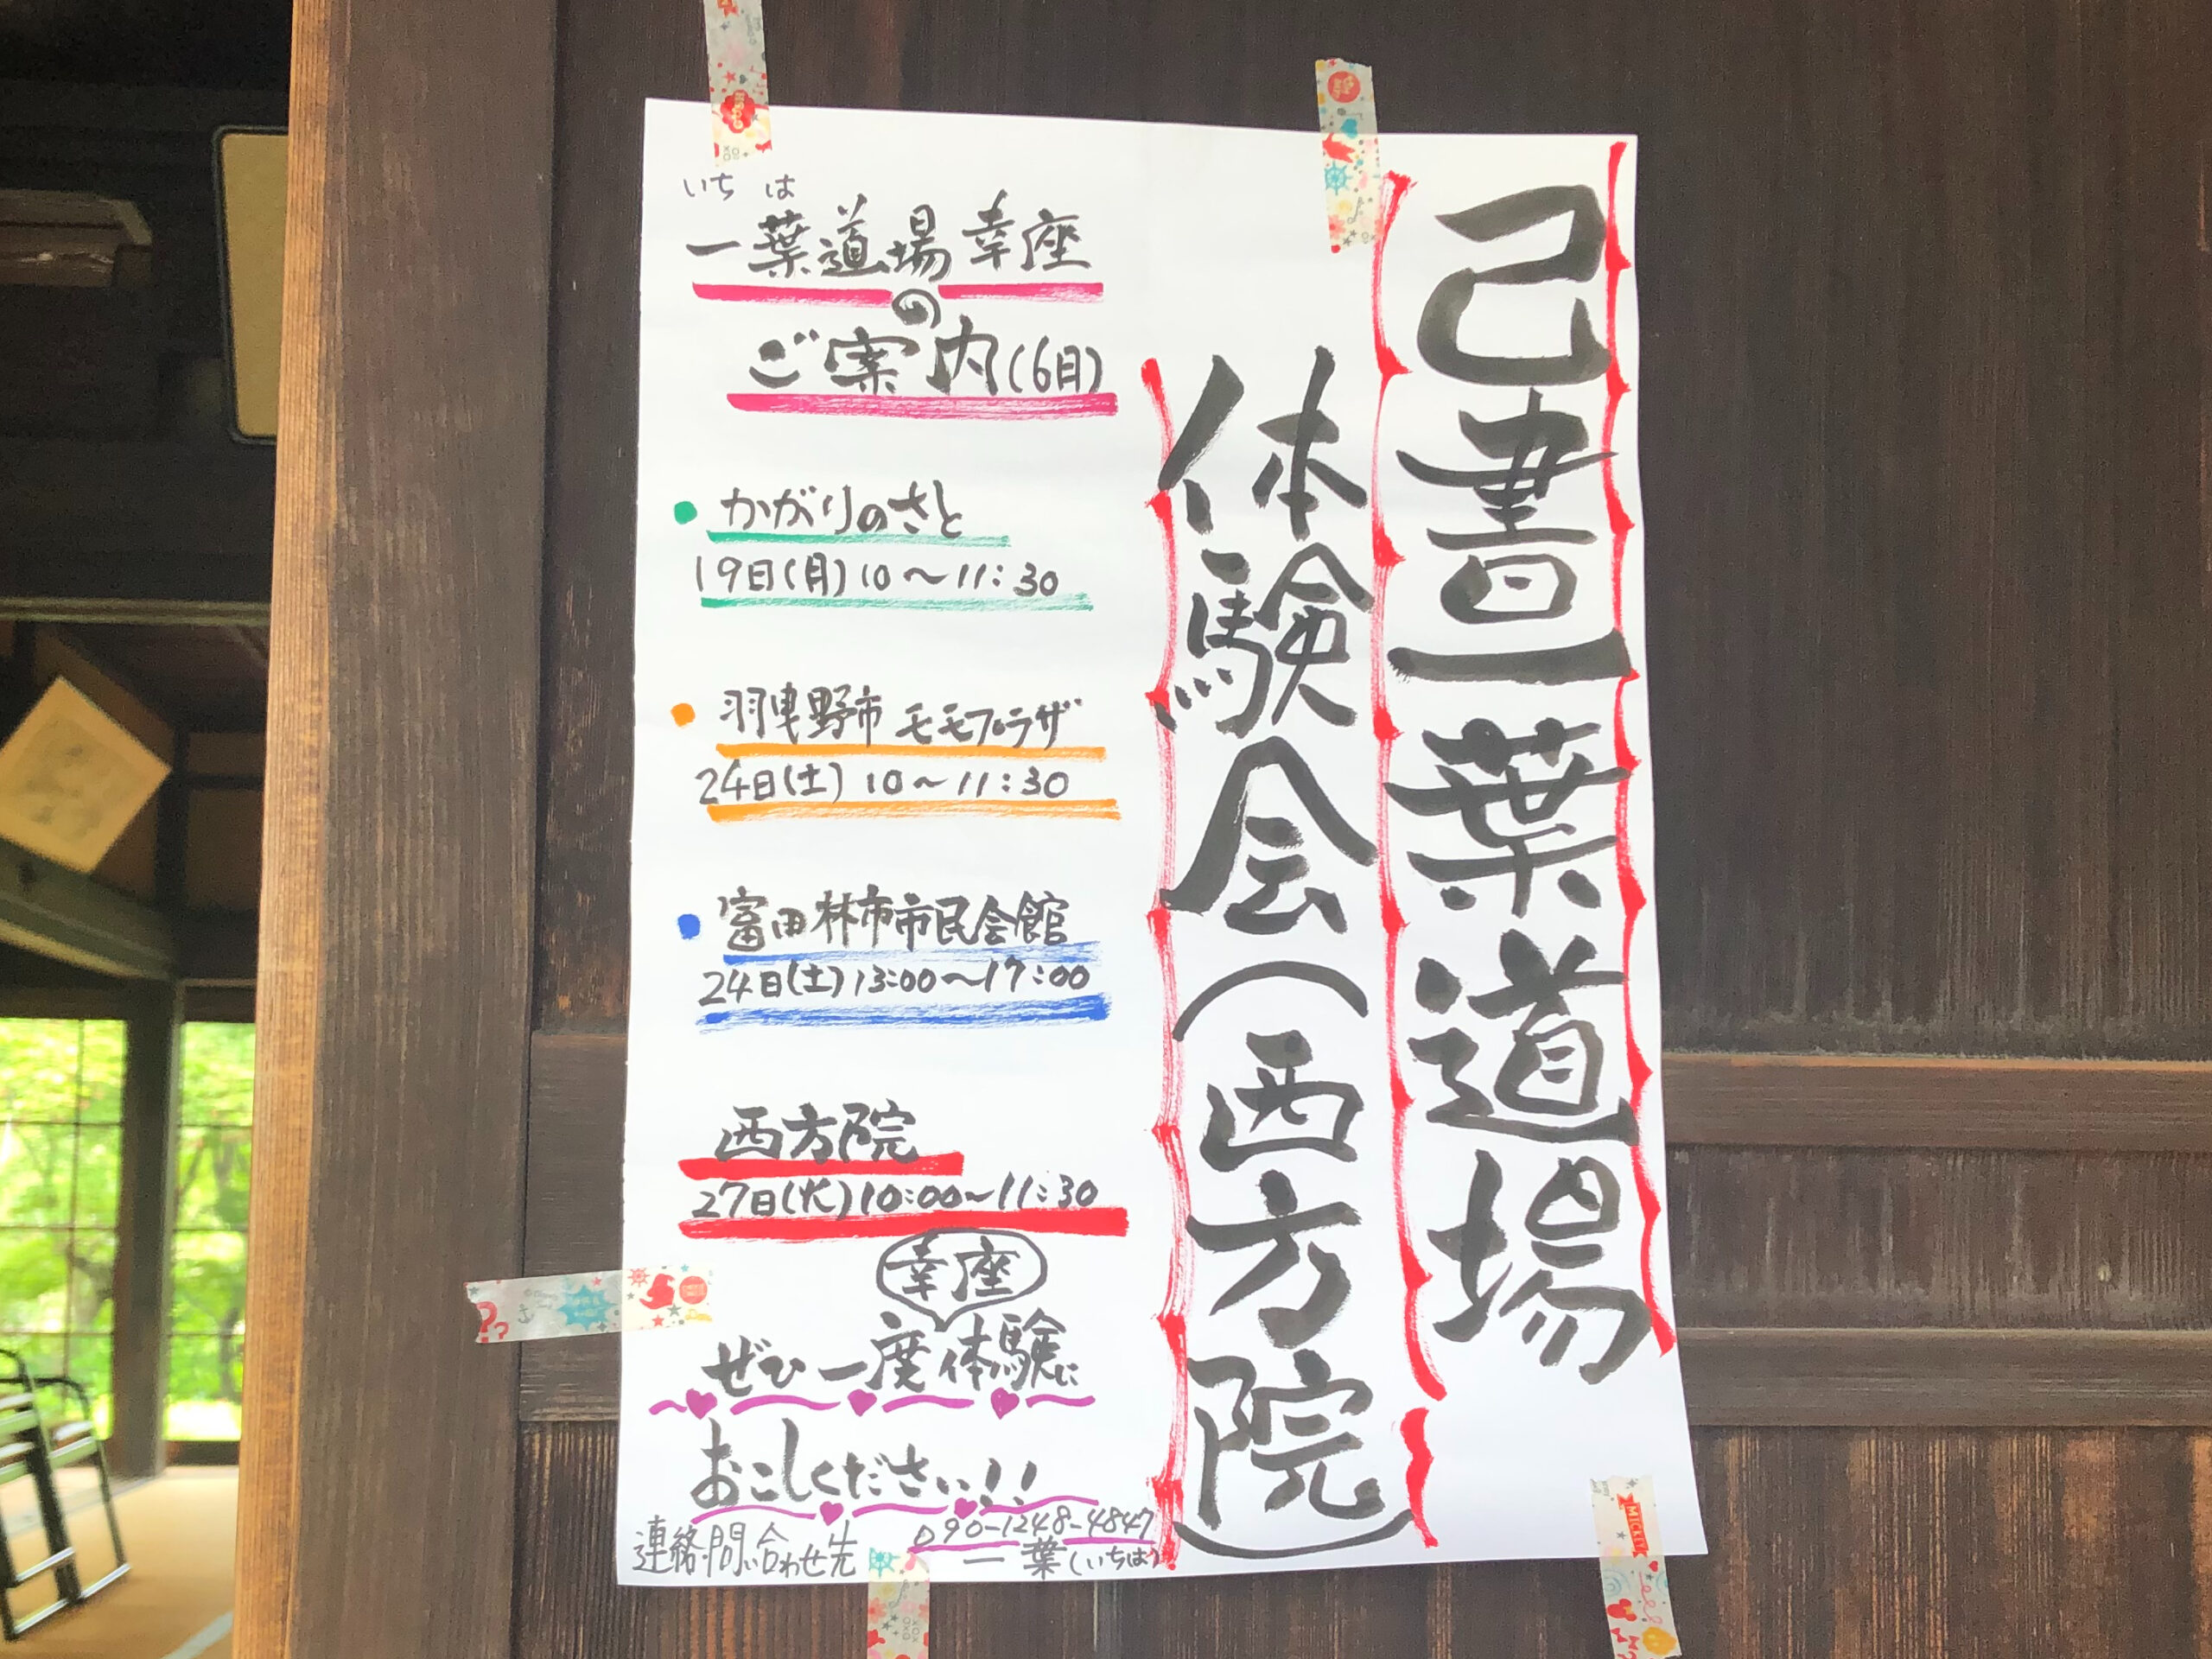 己書一葉道場
体験会(西方院)
いちは
一葉道場幸座
の
ご案内(6月)
かがりのさと
19日(月)10〜11:30
羽曳野市 モモプラザ
24日(土)10〜11:30
富田林市市民会館
24日(土)13:00〜17:00
西方院
27日(火)10:00〜11:30
幸座
ぜひ一度体験に
おこしください!!
連絡・問い合わせ先 090-1248-4847
一葉(いちは)